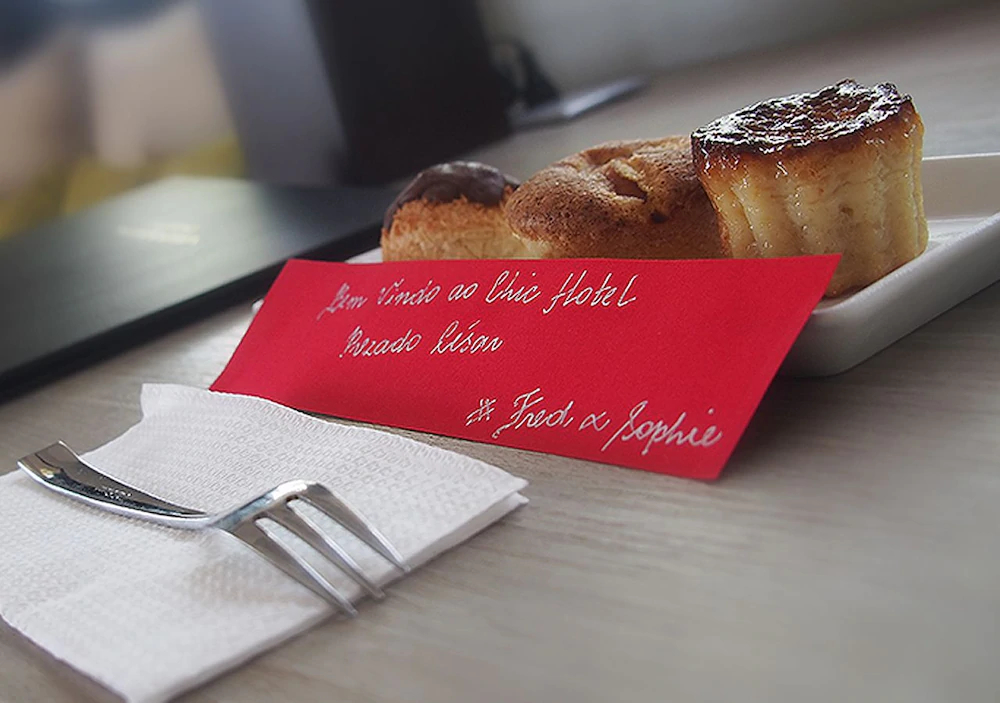 Bem Vindo ao Chic Hotel
Prezado César
# Fred & Sophie